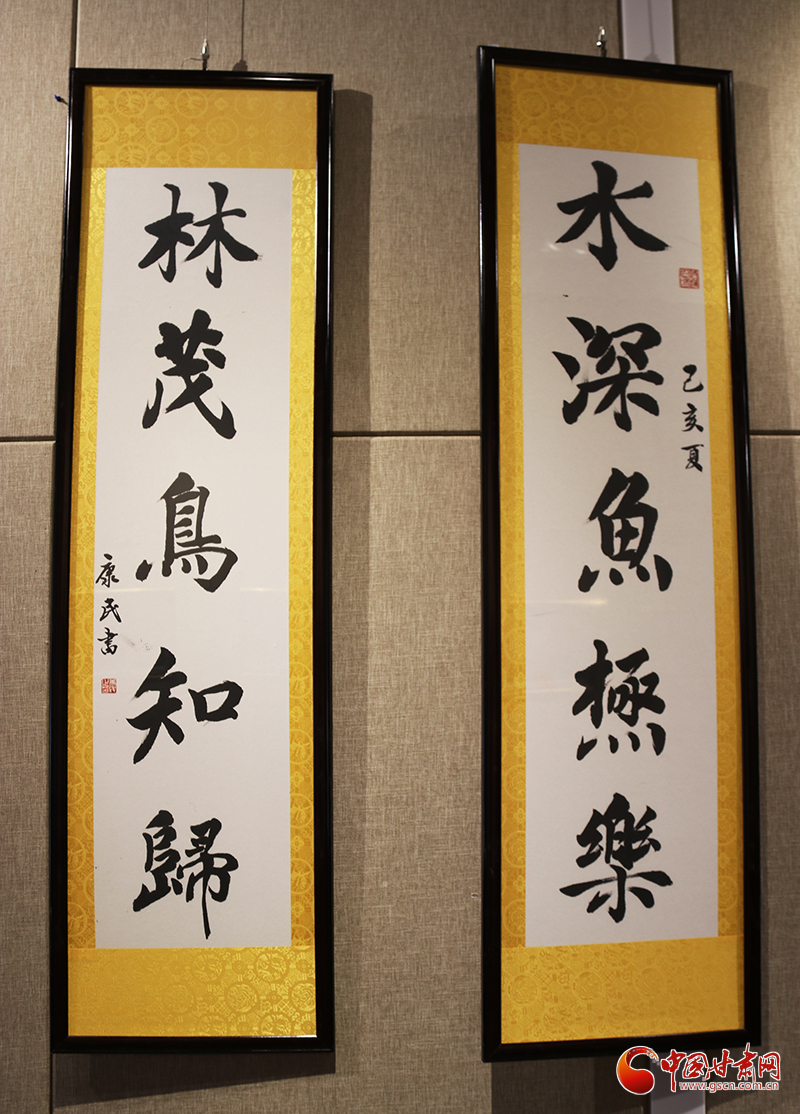 水深魚極樂
己亥夏
林茂鳥知歸
康民書
中国甘肃网
www.gscn.com.cn